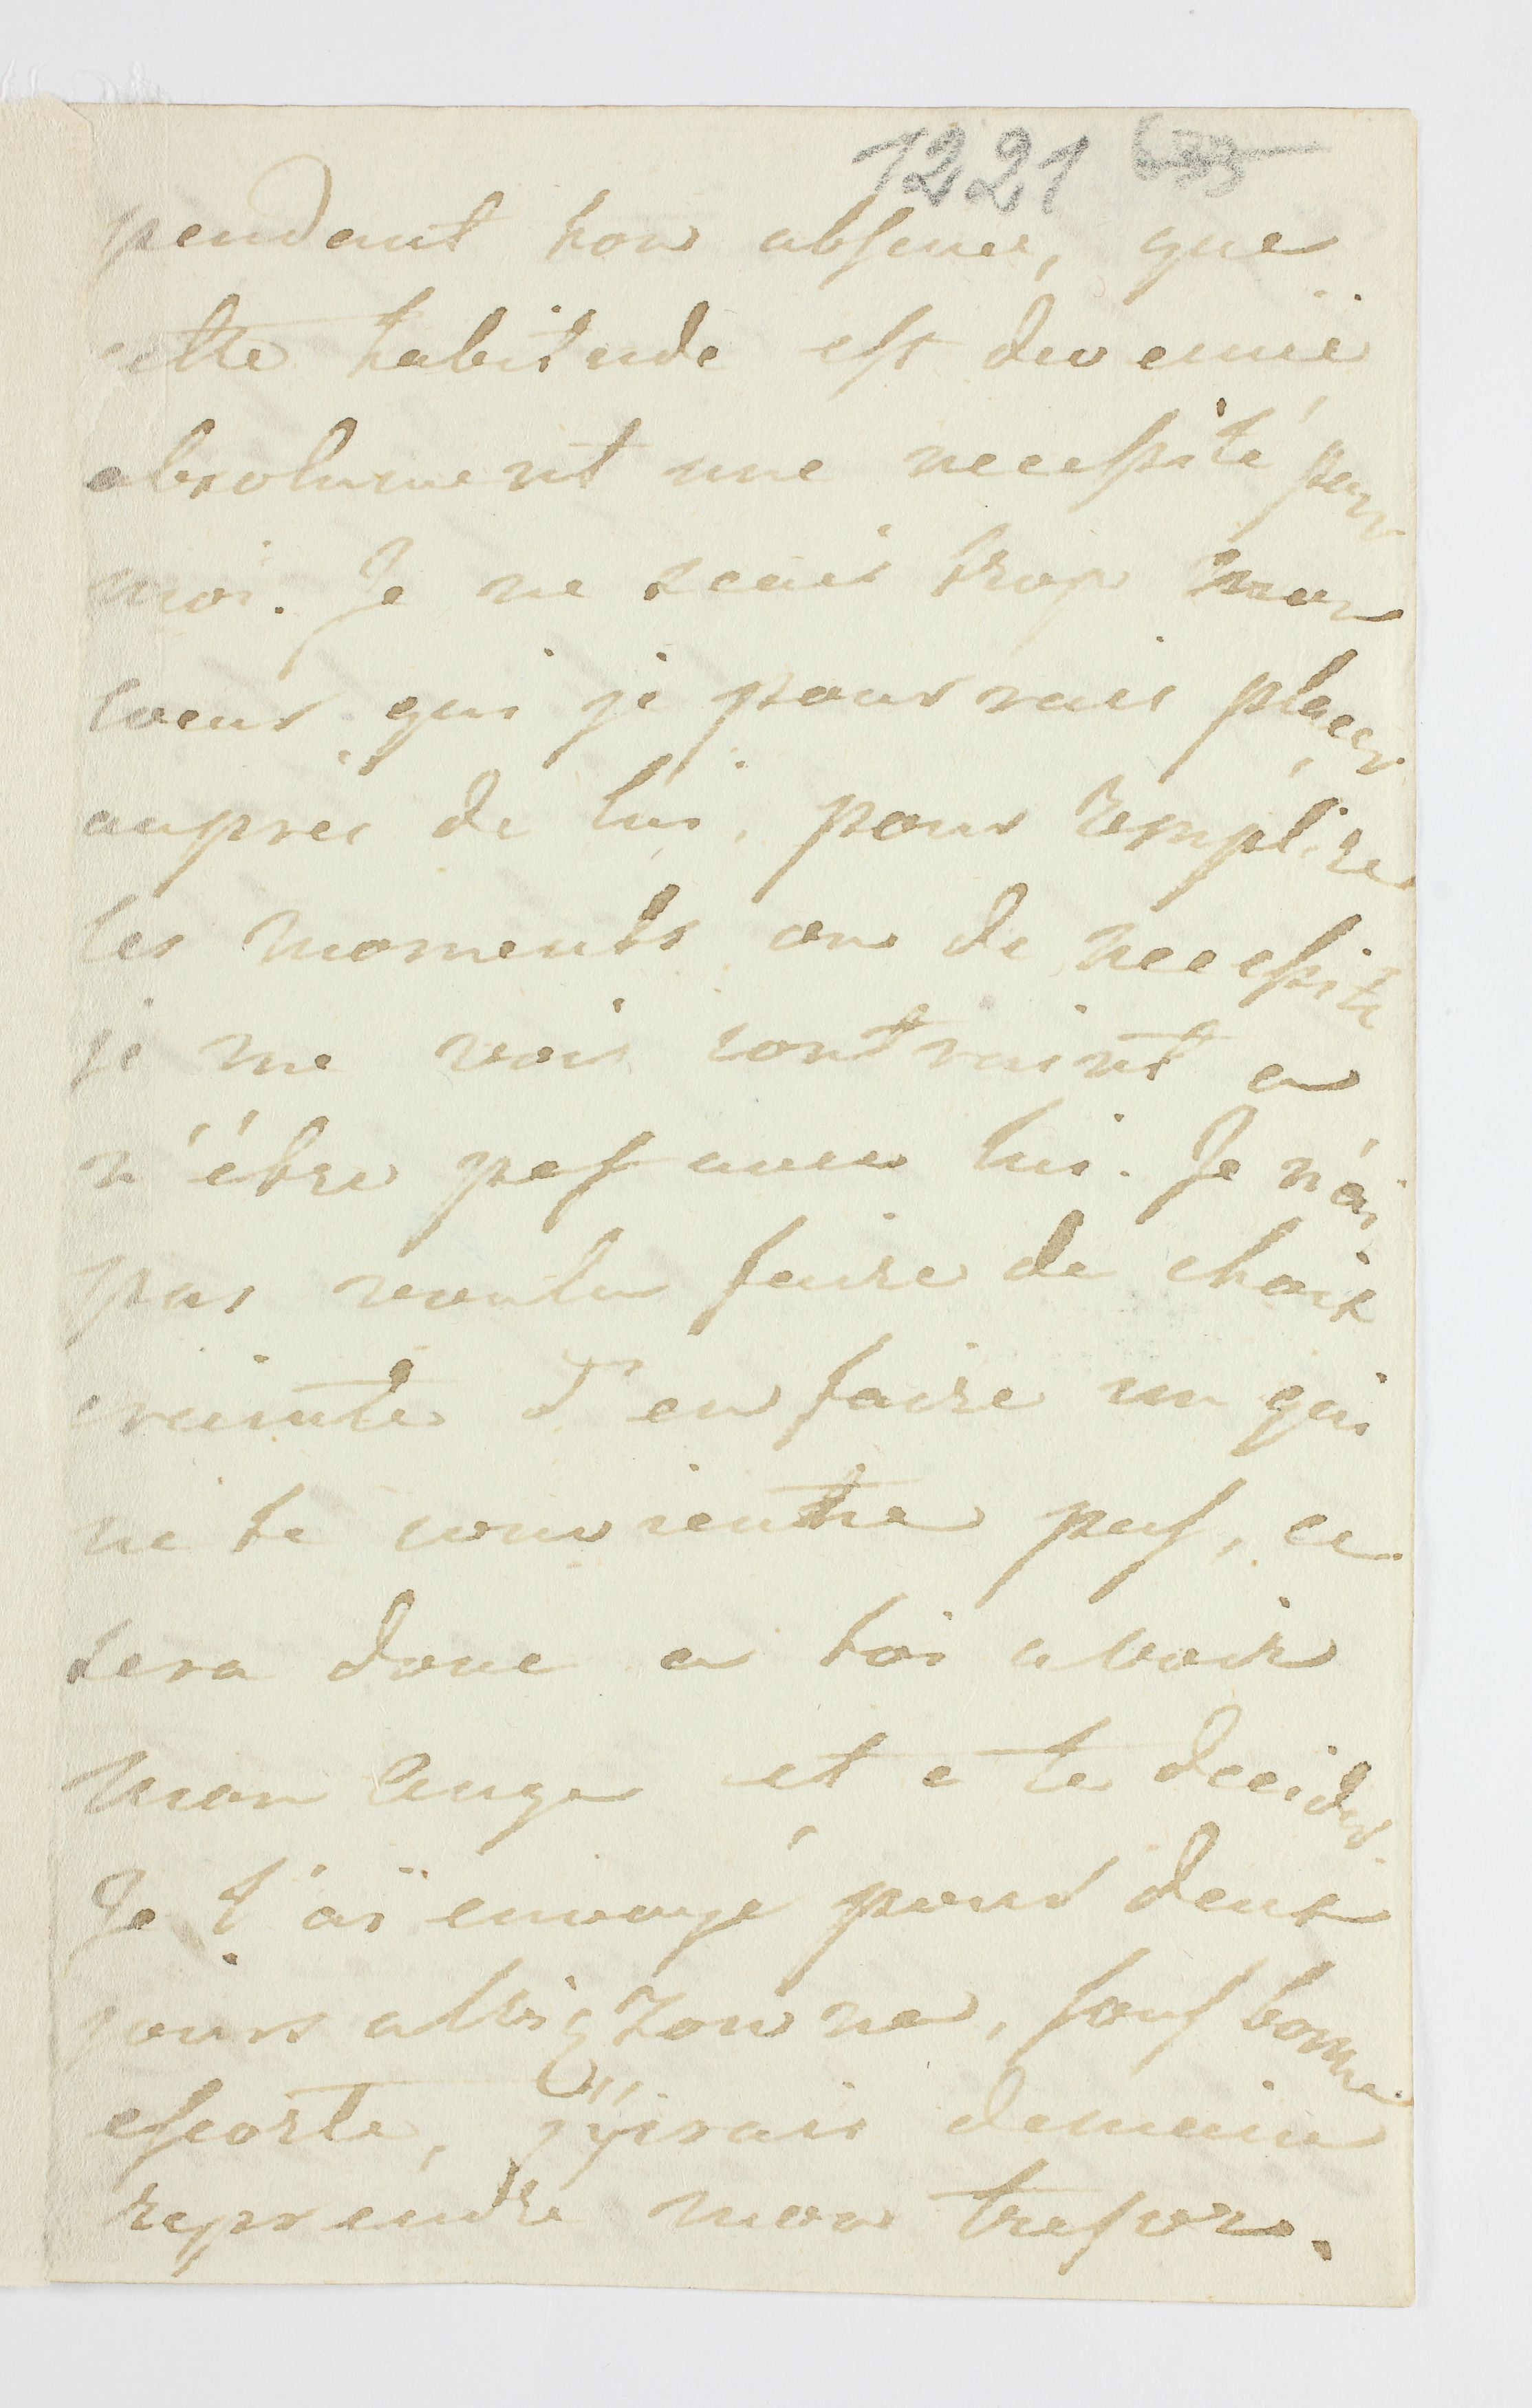 1221
pendant ton absence, que
cette habitude est devenue
absolument une necessité pour
moi. Je ne scais trop mon
coeur qui je pourrais placer
auprès de lui, pour remplire
les moments ou de necessité
je me vois contraint a
n'être pas avec lui. Je n'ai
pas voulu faire de choix
crainte d'en faire un qui
ne te convientre pas, ce
sera donc a toi a voir
mon ange et a te decider.
Je t'ai envoyé pour deux
jours a, sous bonne
escorte, j'yirais demain
reprendre mon tresore.